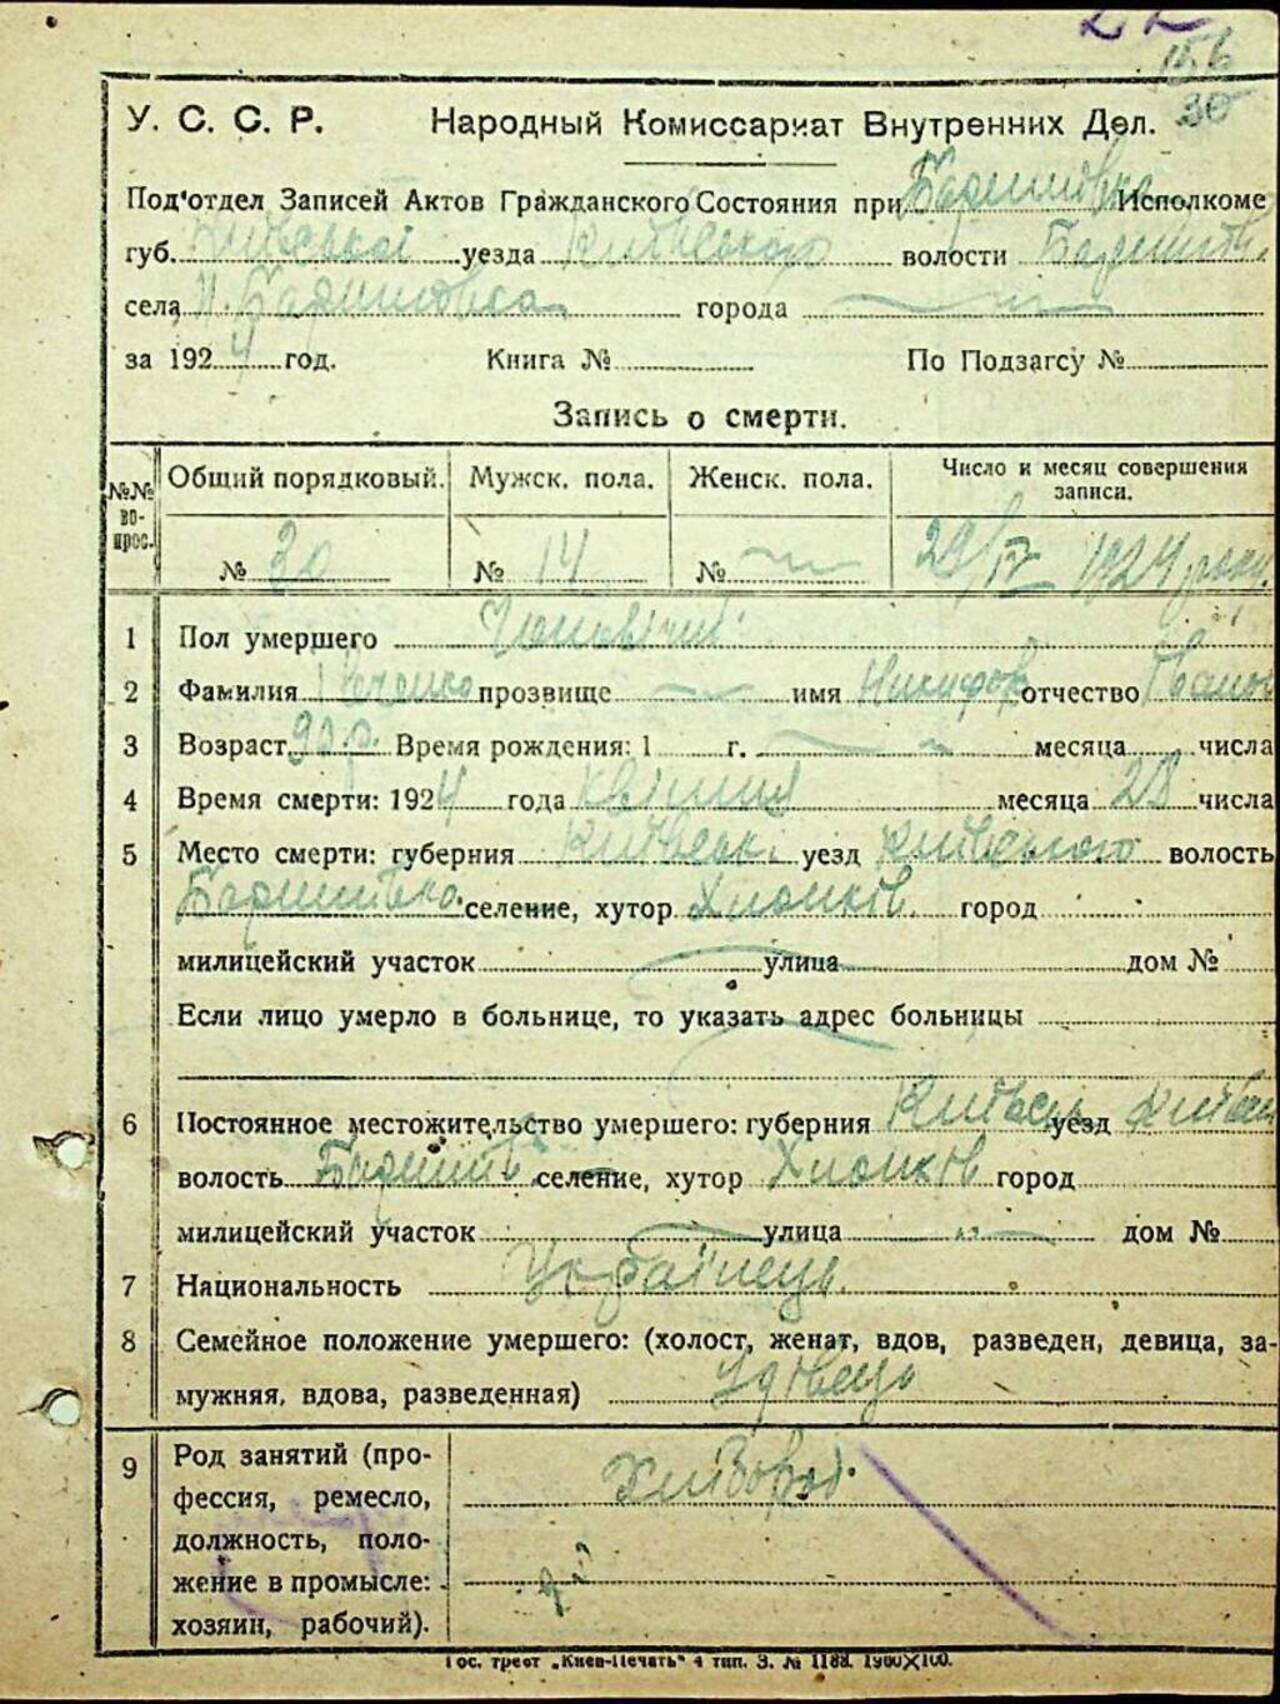 156
30
У. С. С. Р. Народный Комиссариат Внутренних Дел.
Под'отдел Записей Актов Гражданского Состояния при Баришовка Исполкоме
губ. Київської уезда Київського волости Баришів.
села м. Баришовка города
за 1924 год. Книга № По Подзагсу №
Запись о смерти.
№№ во-прос. Общий порядковый. Мужск. пола. Женск. пола. Число и месяц совершения записи.
№ 30 № 14 № 29/IV 1924 року.
1 Пол умершего Чоловічий
2 Фамилия прозвище имя Никифор отчество Іванов
3 Возраст 90 р. Время рождения: 1 г. месяца числа
4 Время смерти: 1924 года квітня месяца 28 числа
5 Место смерти: губерния Київськ. уезд Київського волость
Баришівка селение, хутор Хлопків. город
милицейский участок улица дом №
Если лицо умерло в больнице, то указать адрес больницы
6 Постоянное местожительство умершего: губерния Київськ уезд Київськ
волость Баришів. селение, хутор Хлопків город
милицейский участок улица дом №
7 Национальность Українець.
8 Семейное положение умершего: (холост, женат, вдов, разведен, девица, за-
мужняя, вдова, разведенная) Удівець
9 Род занятий (про-
фессия, ремесло, Хлібороб.
должность, поло-
жение в промысле:
хозяин, рабочий).
Гос. трест „Киев-Печать" 4 тип. З. № 1188. 1900×100.